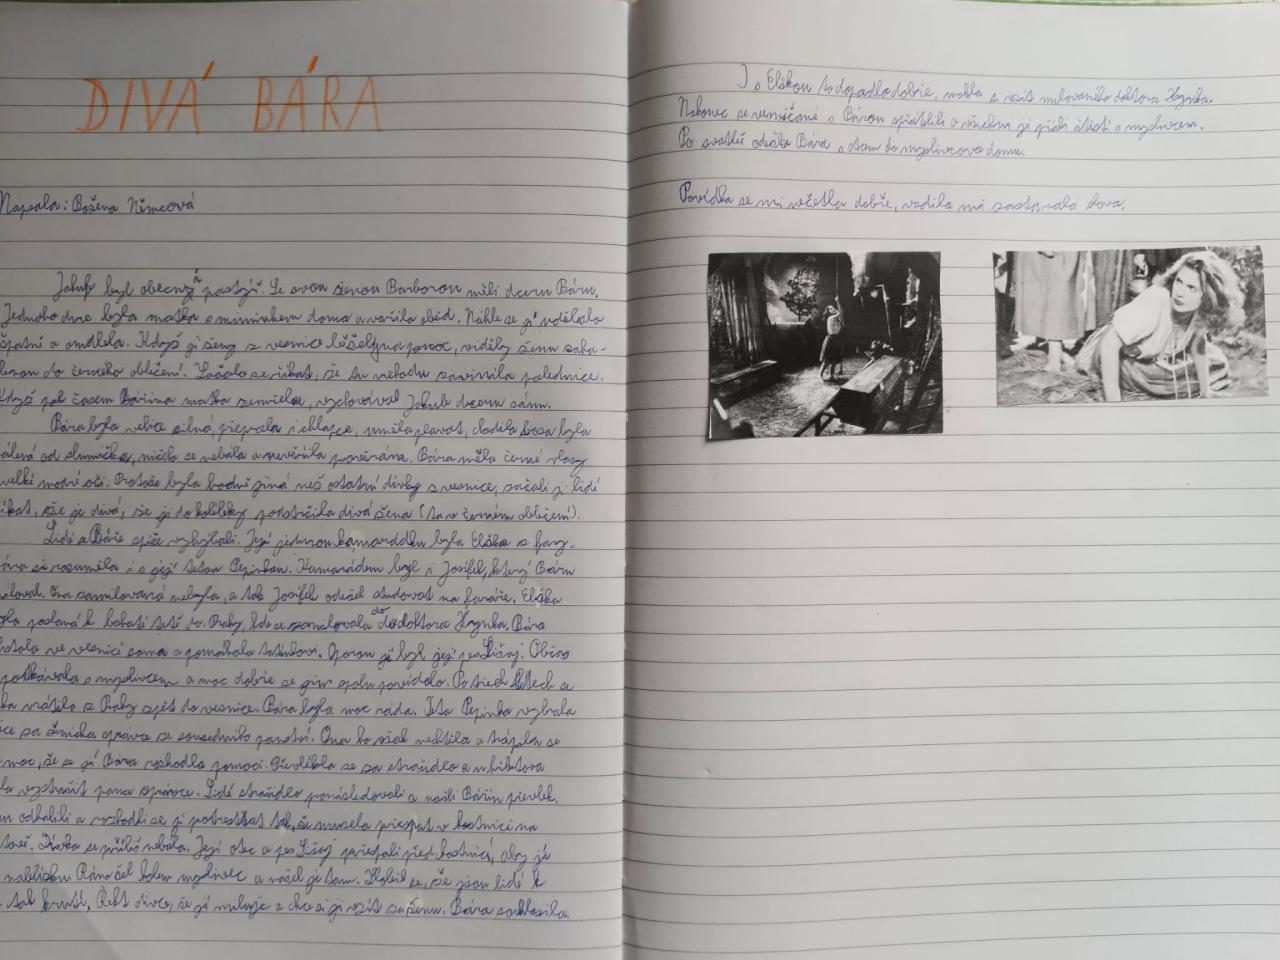 DIVÁ BÁRA
Napsala: Božena Němcová
Jakub byl obecný pastýř. Se svou ženou Barborou měli dceru Báru.
Jednoho dne byla matka s miminkem doma a vařila oběd. Náhle se jí udělalo
špatně a omdlela. Když jí ženy z vesnice běžely na pomoc, viděly ženu zaha-
lenou do černého oblečení. Začalo se říkat, že tu nehodu zavinila polednice.
Když pak časem Bářina matka zemřela, vychovával Jakub dceru sám.
Bára byla velice silná, přeprala i chlapce, uměla plavat, chodila bosa byla
opálená od sluníčka, ničeho se nebála a nevěřila pověrám. Bára měla černé vlasy
velké modré oči. Protože byla hodně jiná než ostatní dívky z vesnice, začali jí lidé
říkat, že je divá, že ji do kolébky podstrčila divá žena (ta v černém oblečení).
Lidé se Báře spíše vyhýbali. Její jedinou kamarádkou byla Eliška z fary.
Bára si rozuměla i s její tetou Pepinkou. Kamarádem byl i Josífek, který Báru
miloval. Ona zamilovaná nebyla, a tak Josífek odešel studovat na faráře. Eliška
byla poslaná k bohaté tetě do Prahy, kde se zamilovala do doktora Hynka. Bára
zůstala ve vesnici sama a pomáhala tatínkovi. Oporou jí byl její pes Lišaj. Občas
potkávala s myslivcem a moc dobře se jim spolu povídalo. Po třech letech se
Eliška vrátila z Prahy zpět do vesnice. Bára byla moc ráda. Teta Pepinka vybrala
za ženicha správce ze sousedního panství. Ona ho však nechtěla a trápila se
moc, že se jí Bára rozhodla pomoci. Převlékla se za strašidlo a u hřbitova
vystrašit pana správce. Lidé strašidlo pronásledovali a našli Bářin převlek.
odhalili a rozhodli se ji potrestat tak, že musela přespat v kostnici na
Dívka se příliš nebála. Její otec a pes Lišaj přespali před kostnicí, aby jí
nablízku. Ráno šel kolem myslivec a našel je tam. Zlobil se, že jsou lidé k
tak krutí. Řekl dívce, že ji miluje a chce si ji vzít za ženu. Bára souhlasila.
I s Eliškou to dopadlo dobře, mohla si vzít milovaného doktora Hynka.
Nakonec se vesničané s Bárou spřátelili a všichni jí přáli štěstí s myslivcem.
Po svatbě odešla Bára s otcem do myslivcova domu.
Povídka se mi nečetla dobře, vadila mi zastaralá slova.